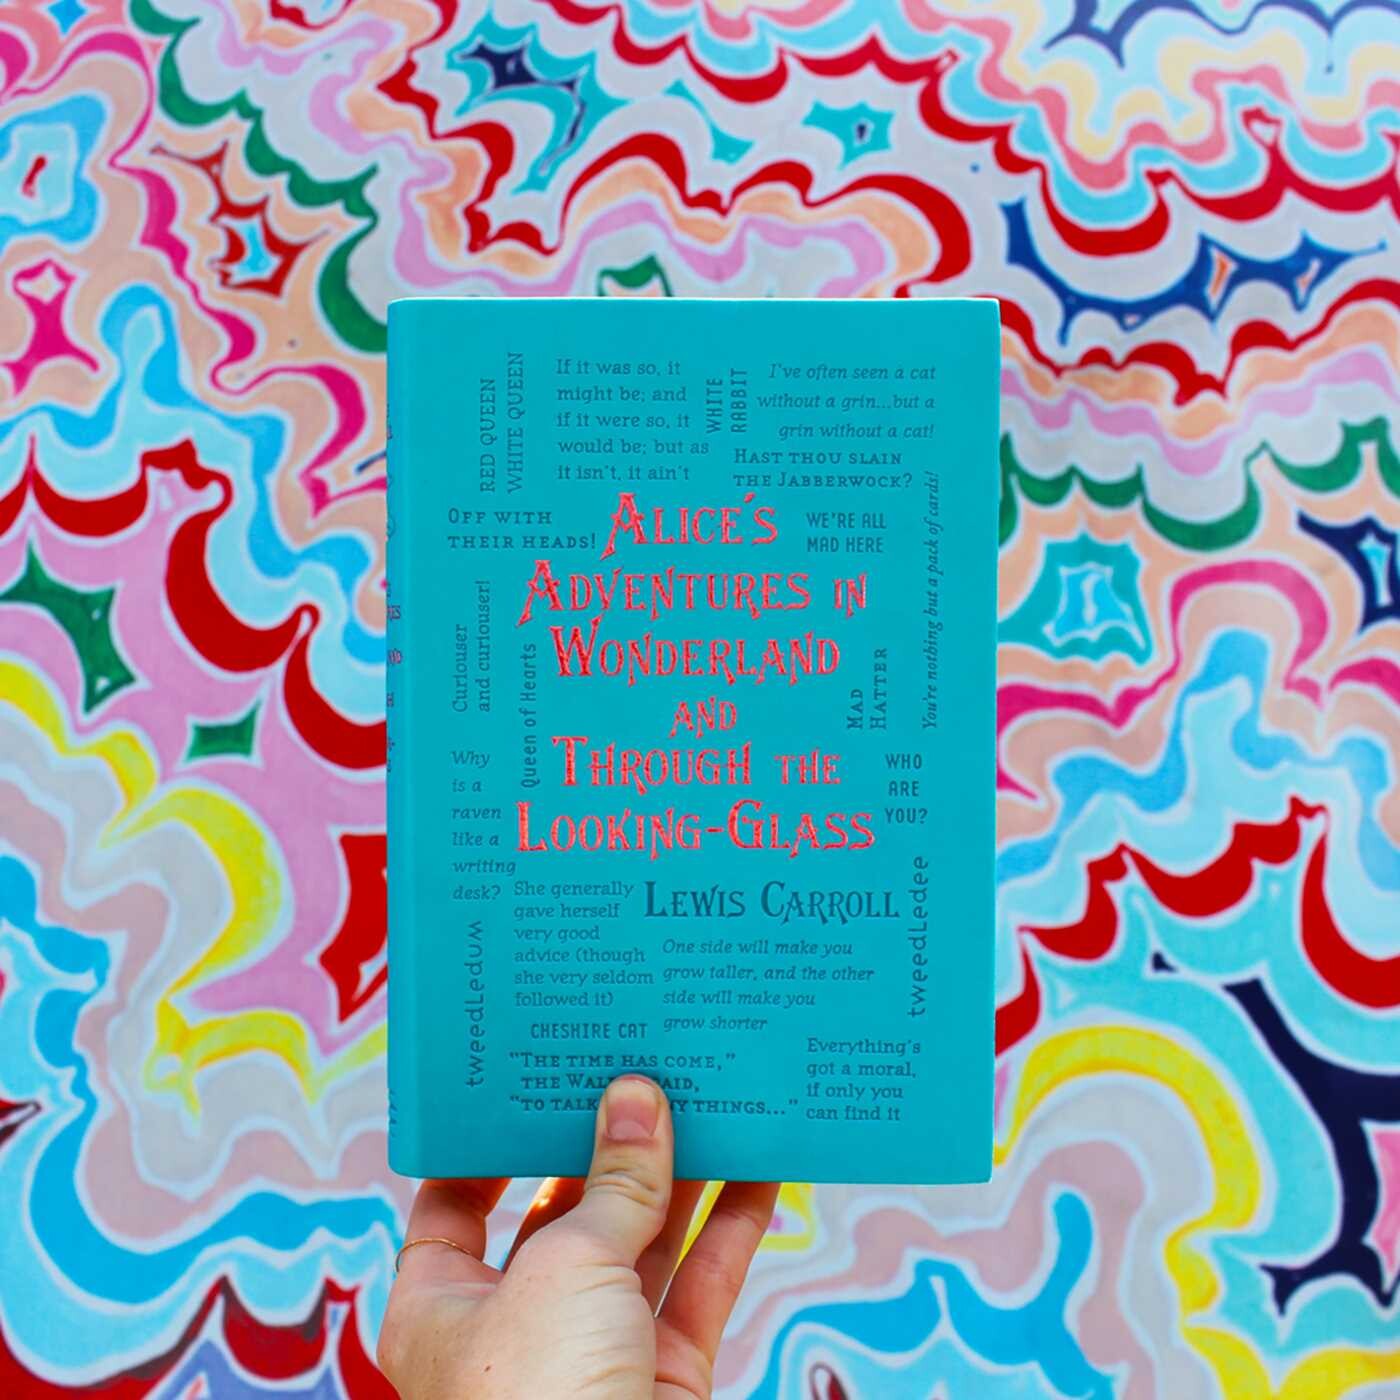 RED QUEEN
WHITE QUEEN
If it was so, it
might be; and
if it were so, it
would be; but as
it isn't, it ain't
WHITE
RABBIT
I've often seen a cat
without a grin...but a
grin without a cat!
HAST THOU SLAIN
THE JABBERWOCK?
OFF WITH
THEIR HEADS!
ALICE'S
ADVENTURES IN
WONDERLAND
AND
THROUGH THE
LOOKING-GLASS
WE'RE ALL
MAD HERE
You're nothing but a pack of cards!
Curiouser
and curiouser!
Queen of Hearts
MAD
HATTER
Why
is a
raven
like a
writing
desk?
WHO
ARE
YOU?
LEWIS CARROLL
She generally
gave herself
very good
advice (though
she very seldom
followed it)
One side will make you
grow taller, and the other
side will make you
grow shorter
tweedledum
tweedledee
CHESHIRE CAT
"THE TIME HAS COME,"
THE
"TO TALK THINGS..."
Everything's
got a moral,
if only you
can find it